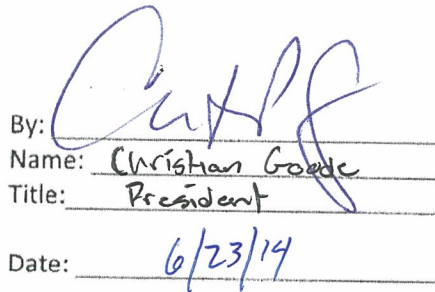 By:
Name: Christian Goode
Title: President
Date: 6/23/14